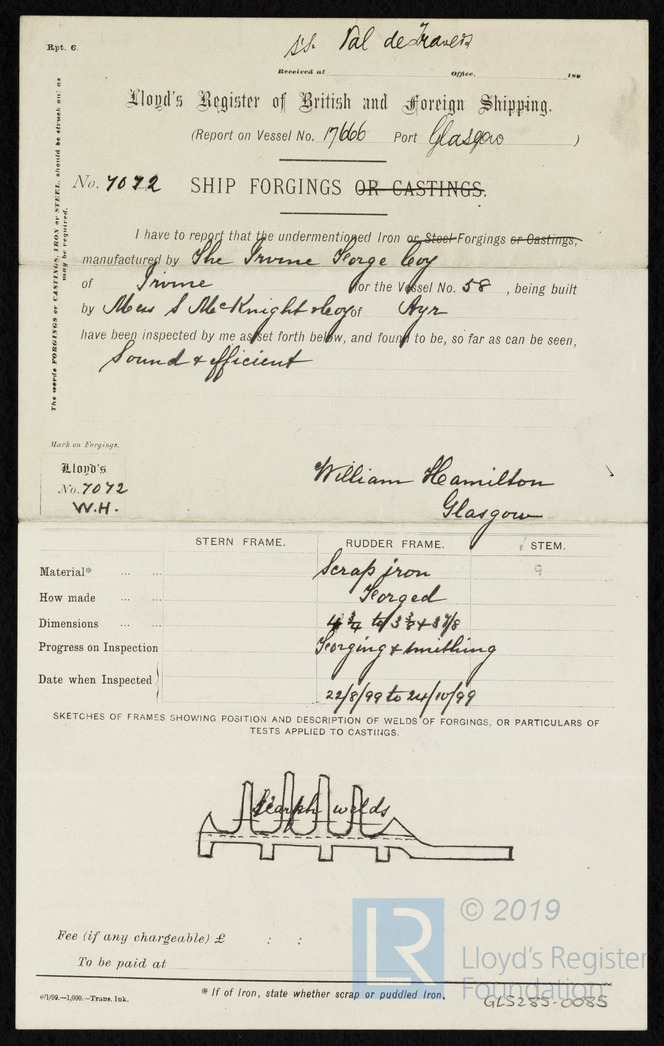 Rpt. 6.
s.s. Val de Travers
Received at Office, 189
Lloyd's Register of British and Foreign Shipping.
(Report on Vessel No. 17666 Port Glasgow )
No. 7072 SHIP FORGINGS OR CASTINGS.
I have to report that the undermentioned Iron or Steel Forgings or Castings,
manufactured by The Irvine Forge Coy
of Irvine for the Vessel No. 58 , being built
by Mess S McKnight & Coy of Ayr
have been inspected by me as set forth below, and found to be, so far as can be seen,
Sound & efficient
The words FORGINGS or CASTINGS, IRON or STEEL, should be struck out as
may be required.
Mark on Forgings.
Lloyd's
No. 7072
W.H.
William Hamilton
Glasgow
STERN FRAME. RUDDER FRAME. STEM.
Material* ... ... Scrap iron 9
How made ... Forged
Dimensions ... ... 4 3/4 to 3 3/8 & 3 7/8
Progress on Inspection Forging & smithing
Date when Inspected 22/8/99 to 24/10/99
SKETCHES OF FRAMES SHOWING POSITION AND DESCRIPTION OF WELDS OF FORGINGS, OR PARTICULARS OF
TESTS APPLIED TO CASTINGS.
Scarph welds
Fee (if any chargeable) £ : :
To be paid at
* If of Iron, state whether scrap or puddled Iron.
6/1/99.—1,000.—Trans. Ink.
LR
© 2019
Lloyd's Register
Foundation
GLS285-0085